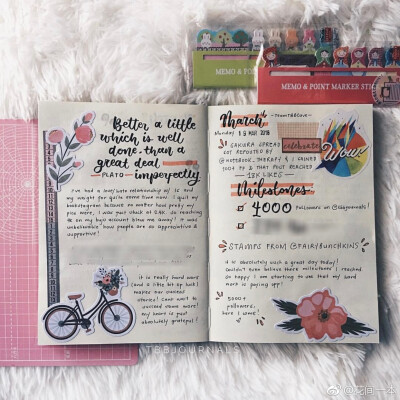 MEMO & POINT MARKER STICKER
MEMO & POINT MARKER STIC
Better a little
which is well
done, than a
great deal
PLATO — imperfectly.
I've had a love/hate relationship w/ IG and
my weight for quite some time now. I quit my
because no matter how pretty my
pics were, I was just stuck at
on my own account blew me away! It was
unbelievable how people are so appreciative &
supportive!
it is really hard work
(and a little bit of luck)
makes our
stories! Can't wait to
my heart is just
absolutely grateful!
March
Monday
2018
celebrate
SAKURA SPREAD
GOT REPOSTED BY
@NOTEBOOK_THERAPY & I GAINED
AND THAT POST REACHED
— 13K LIKES —
Wow!
Milestones
4000 followers on @tbbjournals!
STAMPS FROM @FAIRYBUNCHKINS
it is absolutely such a great day today!
Couldn't even believe these milestones I reached
so happy I am starting to see that my hard
work is paying off!
5000+
followers,
here I come!
TBBJOURNALS